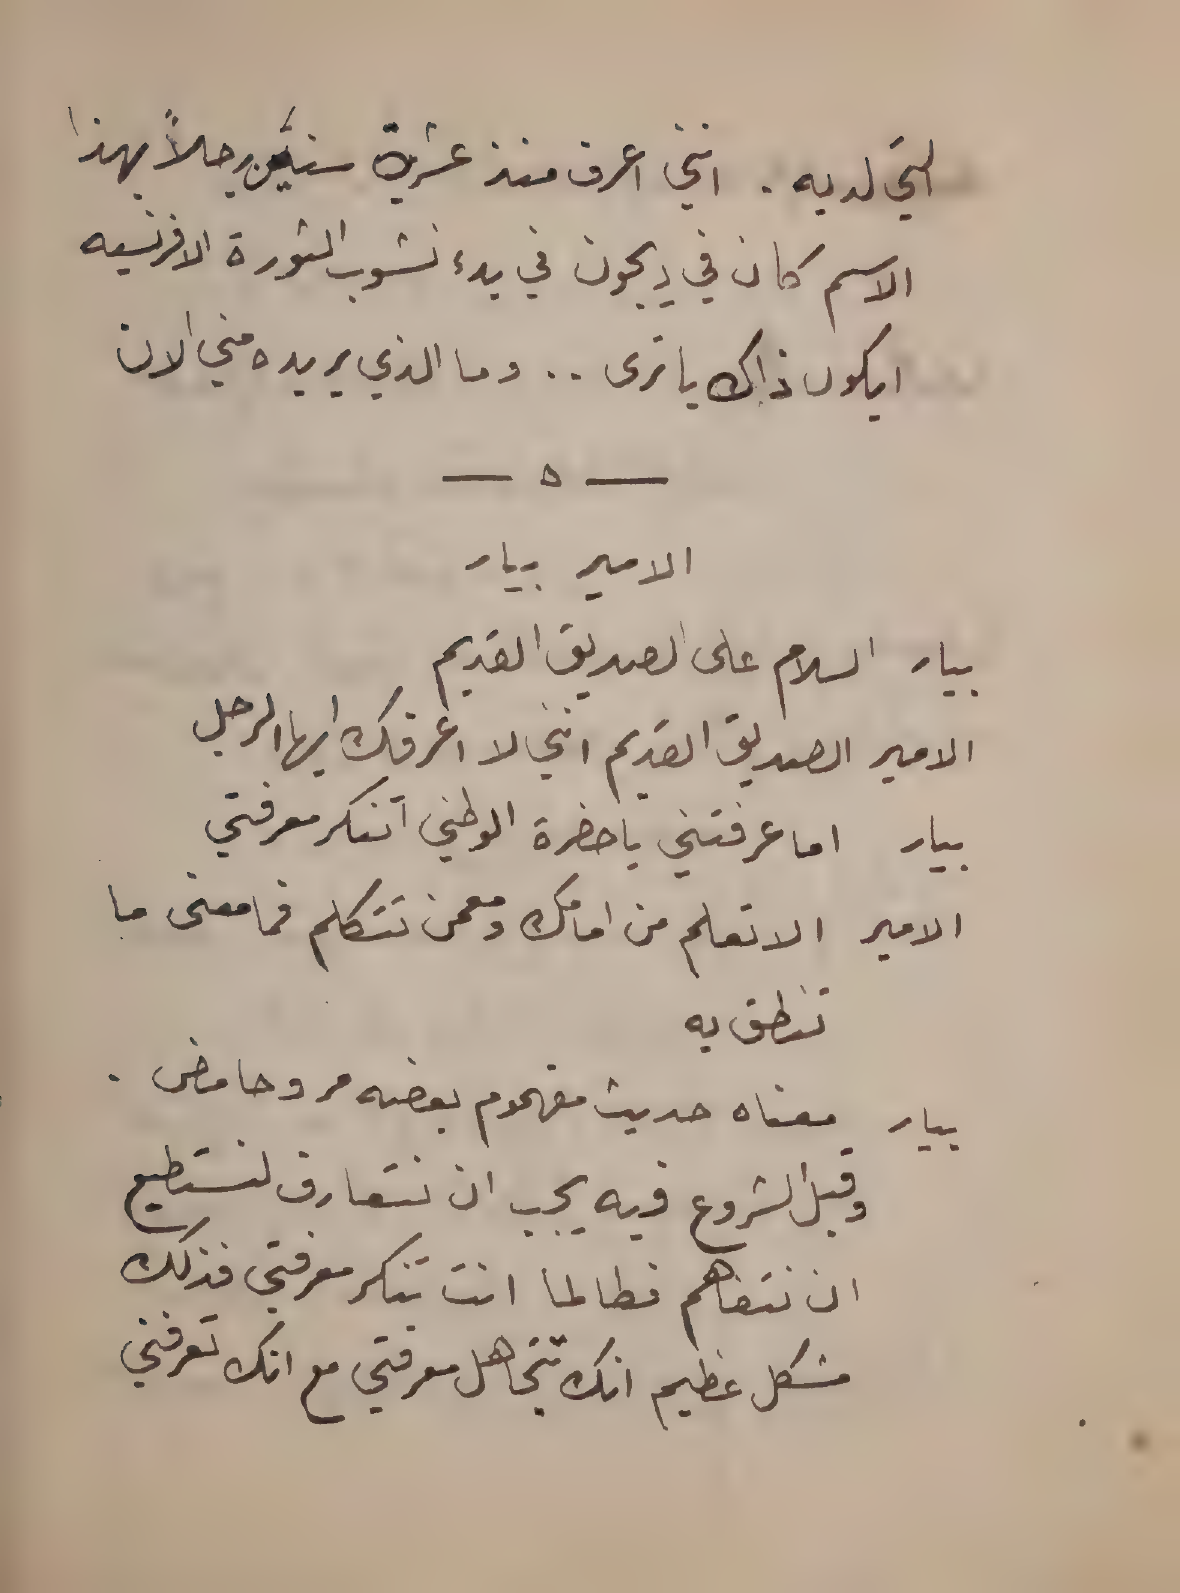 التي لديه . انني اعرف منذ عشرة سنين رجلاً بهذا
الاسم كان في ديجون في بدء نشوب الثورة الافرنسيه
ايكون ذاك يا ترى .. وما الذي يريده مني الان
— ٥ —
الامير بيار
بيار السلام على الصديق القديم
الامير الصديق القديم انني لا اعرفك ايها الرجل
بيار اما عرفتني يا حضرة الوطني أتنكر معرفتي
الامير الا تعلم من امامك ومعمن تتكلم فما معنى ما
تنطق به
بيار معناه حديث مفهوم بعضه مر وحامض .
وقبل الشروع فيه يجب ان نتعارف لنستطيع
ان نتفاهم فطالما انت تنكر معرفتي فذلك
مشكل عظيم انك تتجاهل معرفتي مع انك تعرفني